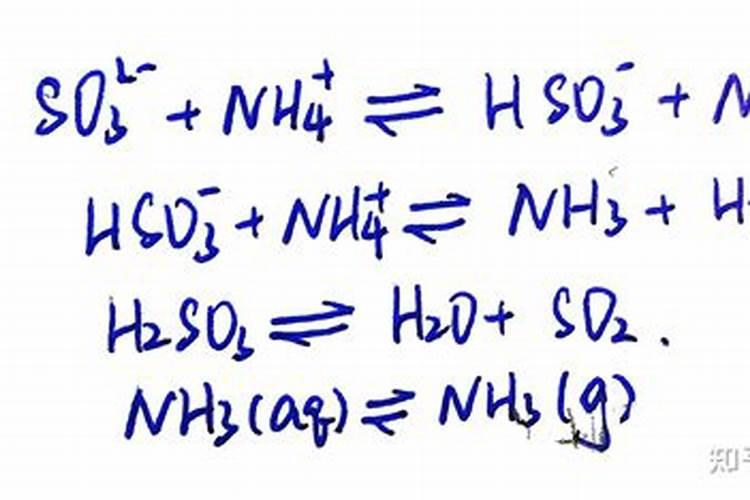 SO₃²⁻ + NH₄⁺ ⇌ HSO₃⁻ + N
HSO₃⁻ + NH₄⁺ ⇌ NH₃ + H
H₂SO₃ ⇌ H₂O + SO₂.
NH₃(aq) ⇌ NH₃(g)
知